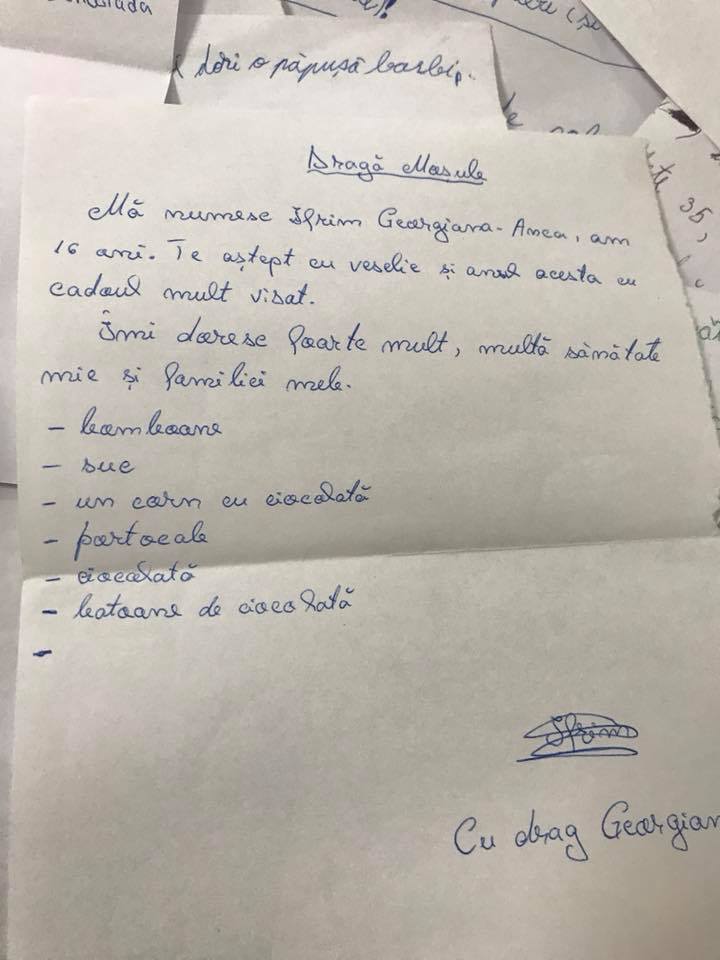 dori o păpușă barbip.
35,
Dragă Moșule
Mă numesc Ifrim Georgiana-Anca, am
16 ani. Te aștept cu veselie și anul acesta cu
cadoul mult visat.
Îmi doresc foarte mult, multă sănătate
mie și familiei mele.
- bomboane
- suc
- un corn cu ciocolată
- portocale
- ciocolată
- batoane de ciocolată
-
Ifrim
Cu drag Georgian